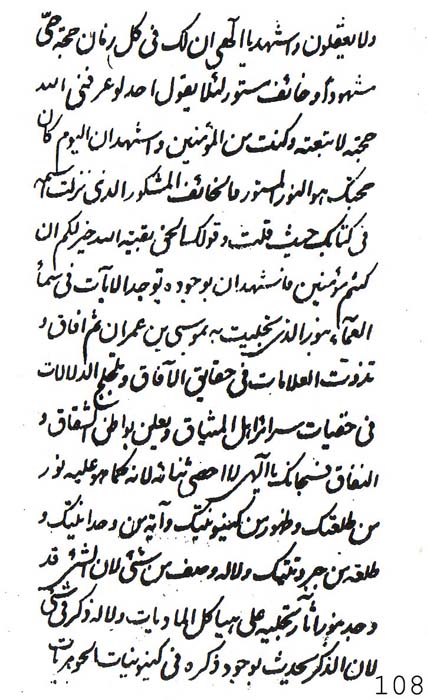 ولا يعقلون واشهد يا الهي ان لك في كل زمان حجة حي
مشهودا او خائف مستور لئلا يقول احد لو عرفني الله
حجته لاتبعته وكنت من المؤمنين واشهد ان اليوم كان
حجتك هو النور المستور والخائف المشكور الذي نزلت اسمه
في كتابك حيث قلت وقولك الحق بقية الله خير لكم ان
كنتم مؤمنين فاشهد ان بوجوده يوجد الايات في سماء
العماء بنور الذي تجليت به بموسى بن عمران ثم افاق و
تذوت العلامات في حقايق الآفاق و الدلالات
في خفيات سرائر اهل الميثاق ويعلن بواطن الشقاق و
النفاق فسبحانك يا الهي لا احصي ثنائه لانه كما هو عليه نور
من طلعتك وظهور من كينونيتك وآية من وحدانيتك و
طلعة من جبروتيتك ولا له وصف من شيء لان الشيء قد
وجد بنور آثار تجليه على هياكل الماديات ولا له ذكر في شيء
لان الذكر يحدث بوجود ذكره في كينونيات الجوهريات
108